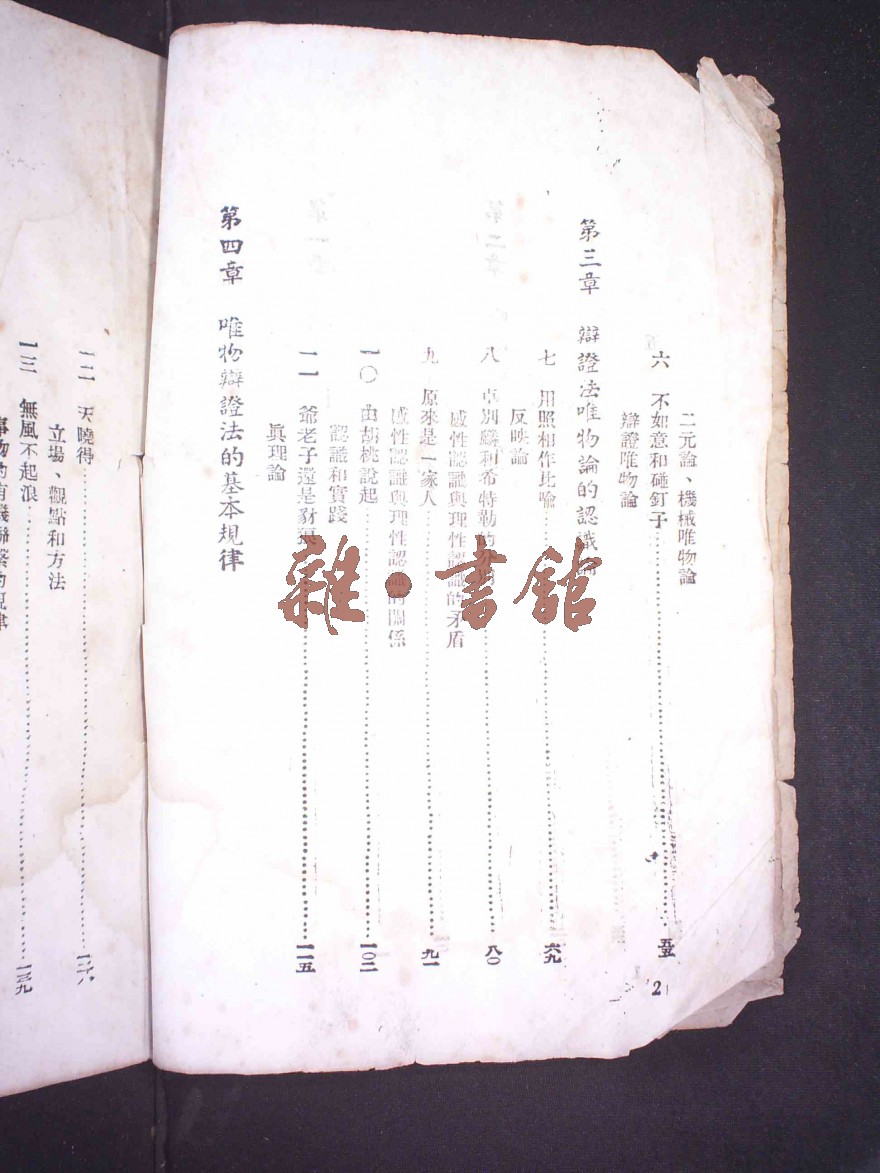 二元論、機械唯物論
六 不如意和碰釘子 五五
辯證唯物論
第三章 辯證法唯物論的認識論
七 用照相作比喻 六九
反映論
八 卓別麟和希特勒的分別 八〇
感性認識與理性認識的矛盾
九 原來是一家人 九一
感性認識與理性認識的關係
一〇 由胡桃說起 一〇二
認識和實踐
一一 爺老子還是豺狼 一一五
眞理論
第四章 唯物辯證法的基本規律
2
一二 天曉得 一二六
立場、觀點和方法
一三 無風不起浪 一三九
事物的有機聯繫的規律
雜·書館